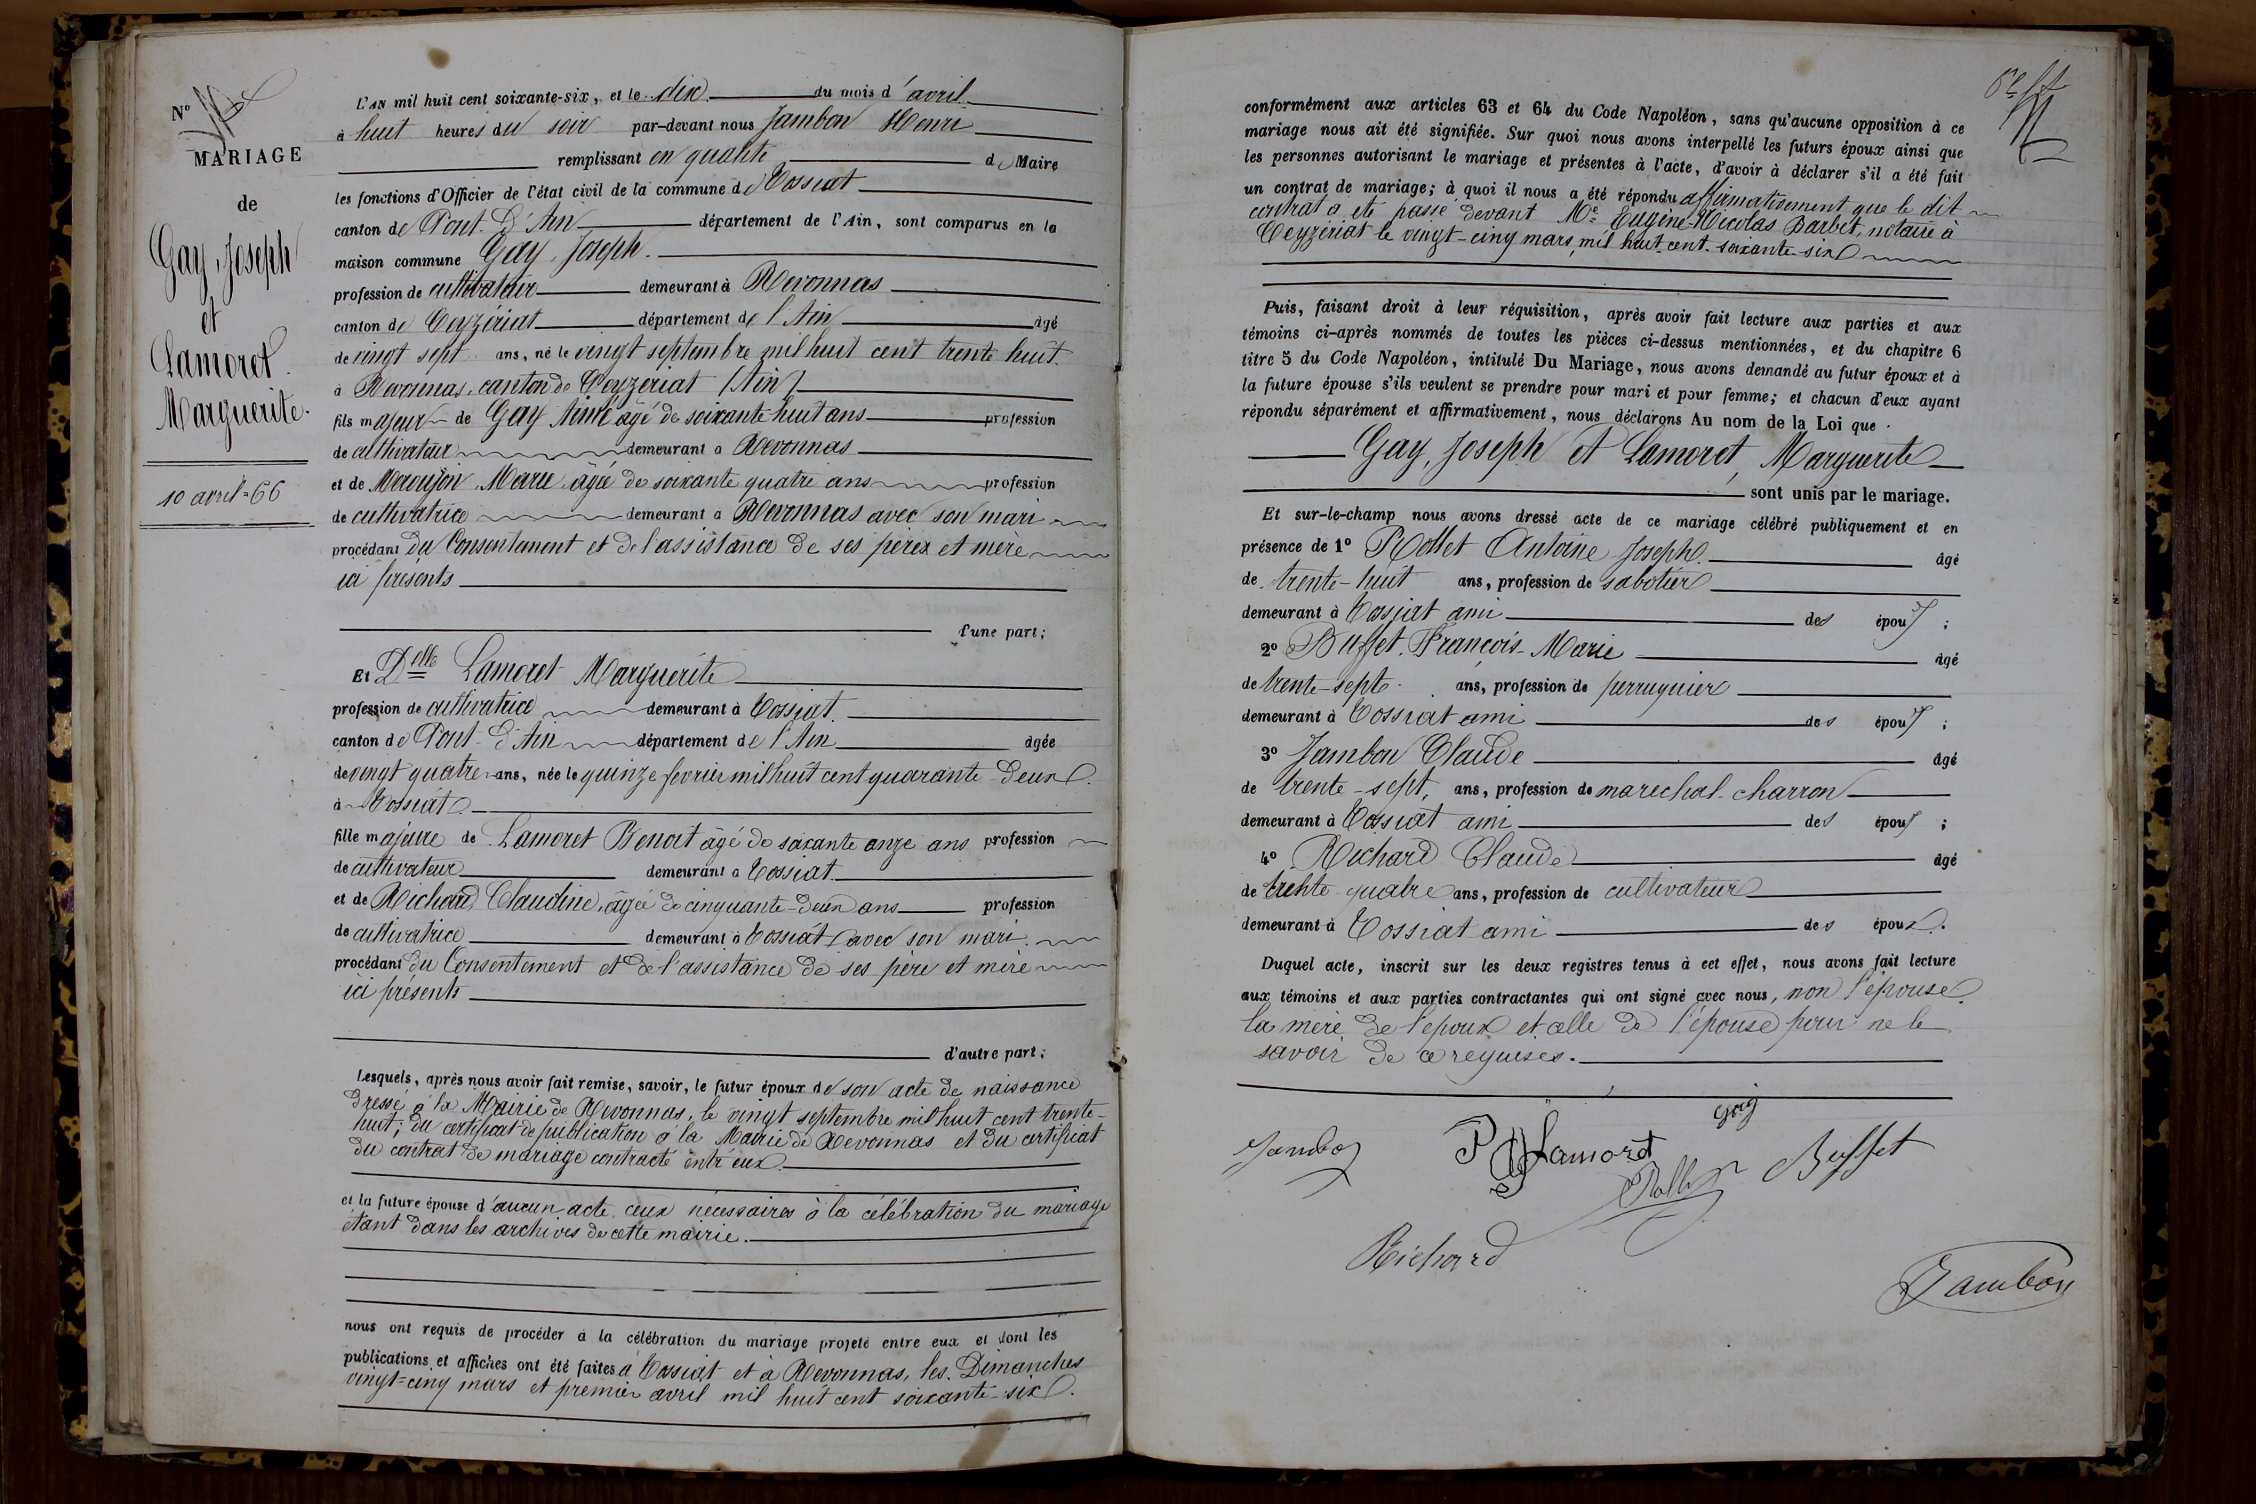 Nº
MARIAGE
de
Gay, Joseph
et
Lamoret
Marguerite.
10 avril = 66
L'AN mil huit cent soixante-six, et le dix du mois d'avril
à huit heures du soir par-devant nous Jambon Henri
remplissant en qualité de Maire
les fonctions d'Officier de l'état civil de la commune de Tossiat
canton de Pont-d'Ain département de l'Ain, sont comparus en la
maison commune Gay, Joseph.
profession de cultivateur demeurant à Revonnas
canton de Ceyzériat département de l'Ain âgé
de vingt sept ans, né le vingt septembre mil huit cent trente huit.
à Revonnas, canton de Ceyzeriat (Ain)
fils majeur de Gay Aimé âgé de soixante huit ans profession
de cultivateur demeurant à Revonnas
et de Marie âgée de soixante quatre ans profession
de cultivatrice demeurant à Revonnas avec son mari
procédant du Consentement et de l'assistance de ses père et mère
ici présents
d'une part;
Et Delle Lamoret Marguerite
profession de cultivatrice demeurant à Tossiat.
canton de Pont-d'Ain département de l'Ain âgée
de vingt quatre ans, née le quinze fevrier mil huit cent quarante-deux
à Tossiat
fille majeure de Lamoret Benoit âgé de soixante onze ans profession
de cultivateur demeurant à Tossiat.
et de Richard Claudine, âgée de cinquante-deux ans profession
de cultivatrice demeurant à Tossiat avec son mari.
procédant du Consentement et de l'assistance de ses père et mère
ici présents
d'autre part;
Lesquels, après nous avoir fait remise, savoir, le futur époux de son acte de naissance
dressé à la Mairie de Revonnas, le vingt septembre mil huit cent trente-
huit; du certificat de publication à la Mairie de Revonnas et du certificat
du contrat de mariage contracté entr'eux.
et la future épouse d'aucun acte ceux nécessaires à la célébration du mariage
étant dans les archives de cette mairie.
nous ont requis de procéder à la célébration du mariage projeté entre eux et dont les
publications et affiches ont été faites à Tossiat et à Revonnas, les Dimanches
vingt-cinq mars et premier avril mil huit cent soixante-six.
conformément aux articles 63 et 64 du Code Napoléon, sans qu'aucune opposition à ce
mariage nous ait été signifiée. Sur quoi nous avons interpellé les futurs époux ainsi que
les personnes autorisant le mariage et présentes à l'acte, d'avoir à déclarer s'il a été fait
un contrat de mariage; à quoi il nous a été répondu affirmativement que le dit
contrat a été passé devant Me Eugène-Nicolas Barbet, notaire à
Ceyzériat le vingt-cinq mars, mil huit cent soixante-six
Puis, faisant droit à leur réquisition, après avoir fait lecture aux parties et aux
témoins ci-après nommés de toutes les pièces ci-dessus mentionnées, et du chapitre 6
titre 5 du Code Napoléon, intitulé Du Mariage, nous avons demandé au futur époux et à
la future épouse s'ils veulent se prendre pour mari et pour femme; et chacun d'eux ayant
répondu séparément et affirmativement, nous déclarons Au nom de la Loi que
Gay, Joseph et Lamoret, Marguerite
sont unis par le mariage.
Et sur-le-champ nous avons dressé acte de ce mariage célébré publiquement et en
présence de 1º Rollet Antoine Joseph. âgé
de trente-huit ans, profession de sabotier
demeurant à Tossiat ami des époux;
2º Buffet François-Marie âgé
de trente-sept ans, profession de perruquier
demeurant à Tossiat ami des époux;
3º Jambon Claude âgé
de trente-sept, ans, profession de marechal-charron
demeurant à Tossiat ami des époux;
4º Richard Claude âgé
de trente-quatre ans, profession de cultivateur
demeurant à Tossiat ami des époux.
Duquel acte, inscrit sur les deux registres tenus à cet effet, nous avons fait lecture
aux témoins et aux parties contractantes qui ont signé avec nous, non l'épouse
la mère de l'époux et celle de l'épouse pour ne le
savoir de ce requises.
Jambon Lamoret Gay Rollet Buffet
Richard
Jambon